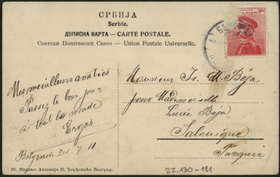 СРБИЈА
Serbie.
ДОПИСНА КАРТА — CARTE POSTALE.
Светски Поштански Савез — Union Postale Universelle.
Mes meilleurs amitiés
Passez le bonjour
à tout le monde
Belgrade
Monsieur M. Béja
pour Mademoiselle
Lucie Béja
Salonique
Turquie
22.130-181